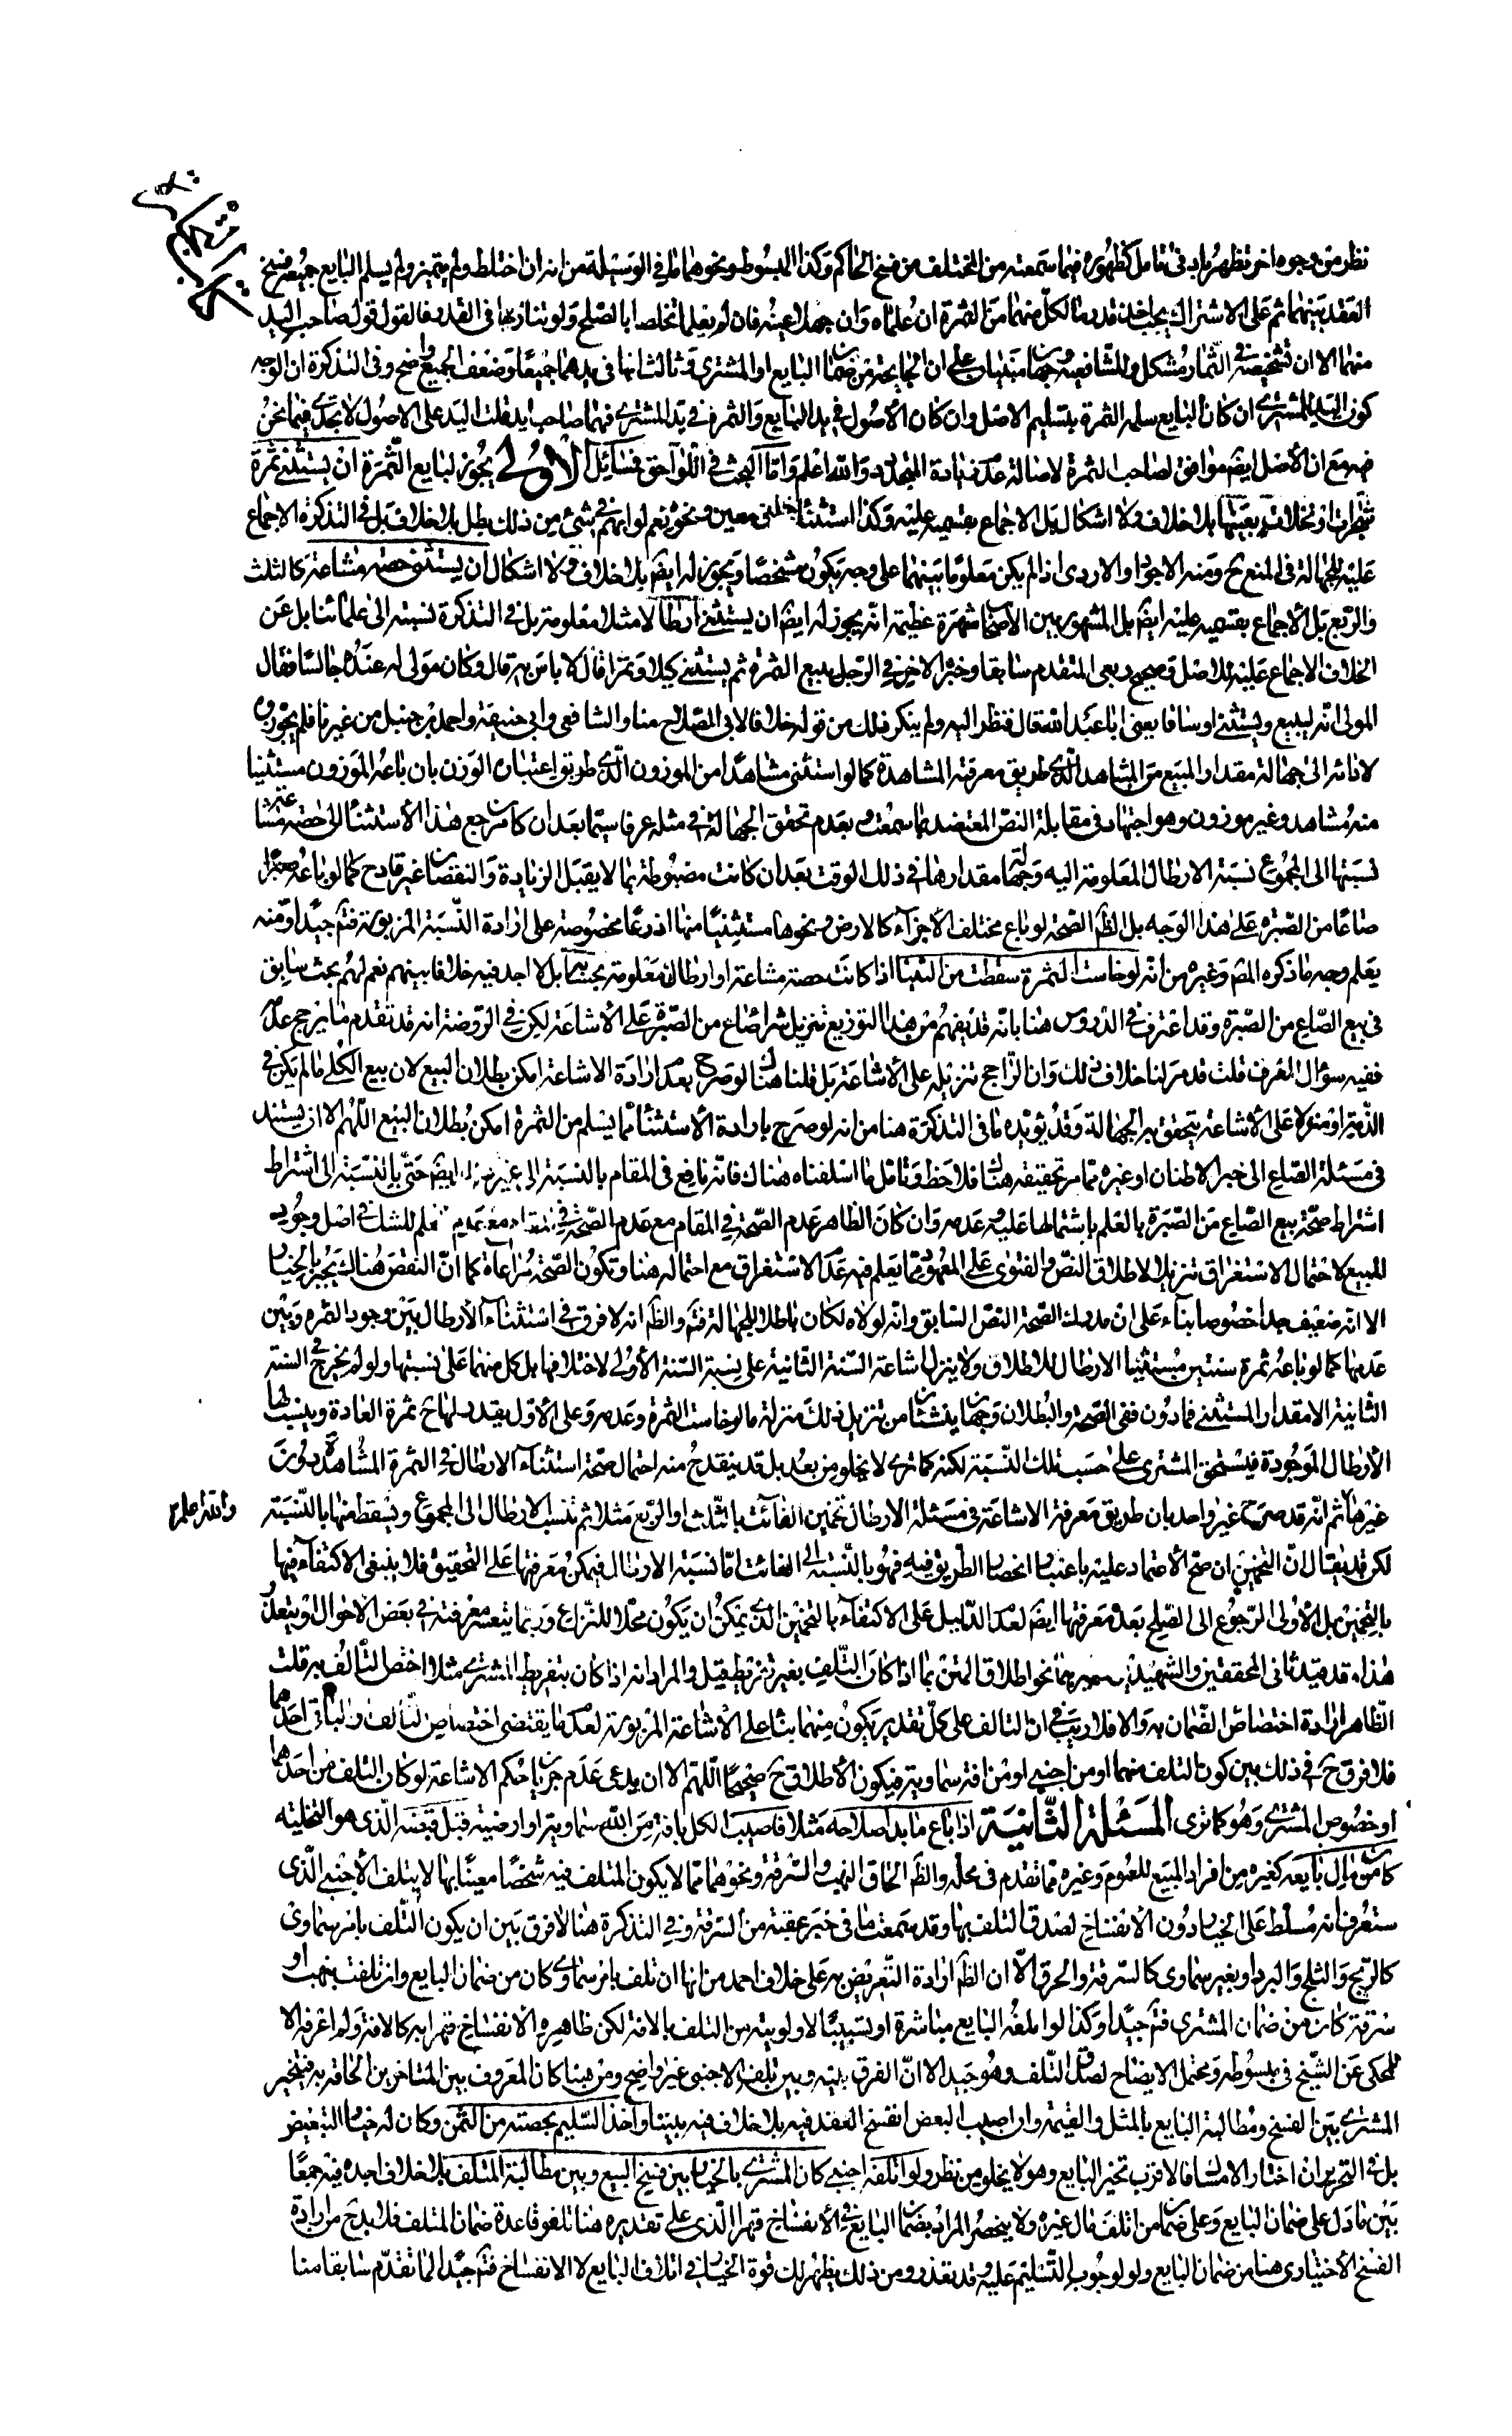 كتاب المتاجر
نظر من وجوه اخر تظهر بادنى تامل كظهوره فيما سمعته من المختلف من فسخ الحاكم وكذا المبسوط ونحوهما ما في الوسيلة من انه ان اختلط ولم يتميز ولم يسلم البايع جميعه فسخ
العقد بينهما ثم على الاشتراك يجب اخذ قدر ما لكل منهما من الثمرة ان علماه وان جهلا عينه فان لم يعلما تخلصا بالصلح ولو تنازعا في القدر فالقول قول صاحب اليد
منهما الا ان تشخيصه في الثمار مشكل وللشافعية وجهان مبنيان على ان الجايحة من ضمان البايع او المشتري وثالث انها في يدهما جميعا وضعف الجميع واضح وفي التذكرة ان الوجه
كون اليد للمشتري ان كان البايع سلمه الثمرة بتسليم الاصل وان كان الأصول في يد البايع والثمرة في يد المشتري فهما صاحبا يد قلت اليد على الاصول لا تجدي فيما نحن
فيه مع ان الأصل ايضا موافق لصاحب الثمرة لاصالة عدم زيادة المتجدد والله اعلم واما البحث في اللواحق فمسائل الاولى يجوز لبايع الثمرة ان يستثنى ثمرة
شجرات او نخلات بعينها بلا خلاف ولا اشكال بل الاجماع بقسميه عليه وكذا استثناء معين ونحوه نعم لو ابهم في شئ من ذلك بطل بلا خلاف بل في التذكرة الاجماع
عليه للجهالة في المنع ح ومنه الاجود او الاردى اذا لم يكن معلوما بينهما على وجه يكون مشخصا ويجوز له ايضا بلا خلاف ولا اشكال ان يستثنى حصة مشاعة كالثلث
والربع بل الأجماع بقسميه عليه ايضا بل المشهور بين الأصحاب شهرة عظيمة انه يجوز له ايضا ان يستثنى ارطالا مثلا معلومة بل في التذكرة نسبته الى علمائنا بل عن
الخلاف الاجماع عليه للاصل وصحيح ربعي المتقدم سابقا وخبره الاخر في الرجل يبيع الثمرة ثم يستثني كيلا وتمرا قال لا باس به قال وكان مولى له عنده جالسا فقال
المولى انه ليبيع ويستثني اوساقا يعنى ابا عبد الله قال فنظر اليه ولم ينكر ذلك من قوله خلافا لابي الصلاح منا والشافعى وابى حنيفة واحمد بن حنبل من غيرنا فلم يجوزوه
لادائه الى جهالة مقدار المبيع من المشاهد الذي طريق معرفته المشاهدة كما لو استثنى مشاهدا من الموزون الذي طريق اعتباره الوزن بان باعه الموزون مستثنيا
منه مشاهد وغير موزون وهو اجتهاد في مقابلة النص المعتضد بما سمعت وبعدم تحقق الجهالة في مثله عرفا سيما بعد ان كان مرجع هذا الأستثناء الى حصة مشاعة
نسبتها الى المجموع نسبة الارطال المعلومة اليه وجهالة مقدارها في ذلك الوقت بعد ان كانت مضبوطة بما لا يقبل الزيادة والنقصان غير قادح كما لو باعه صبرا
صاعا من الصبرة على هذا الوجه بل الظ الصحة لو باع مختلف الأجزاء كالارض ونحوها مستثنيا منها اذرعا مخصوصة على ارادة النسبة المزبورة فتم جيدا ومنه
يعلم وجه ما ذكره المصنف وغيره من انه لو خاست الثمرة سقطت من الثنيا اذا كانت حصة مشاعة او ارطالا معلومة بحسابه بل لا اجد فيه خلافا بينهم نعم لهم بحث سابق
في بيع الصاع من الصبرة وقد اعترف في الدروس هنا بانه قد يفهم من هذا التوزيع تنزيل شراء صاع من الصبرة على الأشاعة لكن في الروضة انه قد تقدم ما يرجح عدمه
ففيه سؤال الفرق قلت قد مر لنا خلاف ذلك وان الراجح تنزيله على الأشاعة بل قلنا هناك لو صرح بعدم ارادة الاشاعة امكن بطلان البيع لان بيع الكلي ما لم يكن في
الذمة او منزلا على الأشاعة يتحقق به الجهالة وقد يؤيده ما في التذكرة هنا من انه لو صرح بارادة الأستثناء مما يسلم من الثمرة امكن بطلان البيع اللهم الا ان يستند
في مسئلة الصاع الى خبر الاطنان او غيره مما مر تحقيقه هناك فلاحظ وتامل ما اسلفناه هناك فانه نافع في المقام بالنسبة الى غير ذلك ايضا حتى بالنسبة الى اشتراط
اشتراط صحة بيع الصاع من الصبرة بالعلم باشتمالها عليه وعدمه وان كان الظاهر عدم الصحة في المقام مع عدم العلم للشك في اصل وجود
المبيع لاحتمال الاستغراق تنزيلا لاطلاق النص والفتوى على المعهود مما يعلم فيه عدم الاستغراق مع احتماله هنا وتكون الصحة مراعاة كما ان النقص هناك يجبر بالخيار
الا انه ضعيف جدا خصوصا بناء على ان مدرك الصحة النص السابق وانه لولاه لكان باطلا للجهالة فتم والظ انه لا فرق في استثناء الأرطال بين وجود الثمرة وبين
عدمها كما لو باعه ثمرة سنتين مستثنيا الارطال للاطلاق ولا ينزل اشاعة السنة الثانية على نسبة السنة الأولى لاختلافها بل كل منهما على نسبتها ولو لم يخرج في السنة
الثانية الا مقدار المستثنى فما دون ففي الصحة والبطلان وجهان ينشئان من تنزيل ذلك منزلة ما لو خاست الثمرة وعدمه وعلى الأول يقدر لها ح ثمرة العادة وينسب لها
الأرطال الموجودة فيستحق المشترى على حسب تلك النسبة لكنه كما ترى لا يخلو من بعد بل قد ينقدح منه احتمال صحة استثناء الارطال في الثمرة المشاهدة بدون
غيرها ثم انه قد صرح غير واحد بان طريق معرفة الاشاعة في مسئلة الارطال تخمين الفائت بالثلث او الربع مثلا ثم تنسب الارطال الى المجموع ويسقط منها بالنسبة
والله اعلم
لكن قد يقال ان التخمين ان صح الأعتماد عليه باعتبار انحصار الطريق فيه فهو بالنسبة الى الفائت اما نسبة الارطال فيمكن معرفتها على التحقيق فلا ينبغي الاكتفاء فيها
بالتخمين بل الأولى الرجوع الى الصلح بعد معرفتها ايضا لعدم الدليل على الاكتفاء بالتخمين الذي يمكن ان يكون محلا للنزاع وربما يتعسر معرفته في بعض الاحوال او يتعذر
هذا وقد قيد ثاني المحققين والشهيدين وغيرهما نحو اطلاق المتن بما اذا كان التلف بغير تفريط قيل والمراد انه اذا كان بتفريط المشترى مثلا اختص التالف به قلت
الظاهر ارادة اختصاص الضمان به والا فلا ريب في ان التالف على كل تقدير يكون منهما بناء على الاشاعة المزبورة لعدم ما يقتضى اختصاص التالف والباقي احدهما
فلا فرق ح في ذلك بين كون التلف منهما او من اجنبي او من افة سماوية فيكون الأطلاق ح صحيحا اللهم الا ان يدعى عدم جريان حكم الاشاعة لو كان التلف من احدهما
او خصوص المشترى وهو كما ترى المسئلة الثانية اذا باع ما بدا صلاحه مثلا فاصيب الكل بافة من الله سماوية او ارضية قبل قبضه الذي هو التخلية
كان من مال بايعه كغيره من افراد المبيع للعموم وغيره مما تقدم في محله والظ الحاق النهب والسرقة ونحوهما مما لا يكون المتلف فيه شخصا معينا بها لا بتلف الأجنبي الذي
ستعرف انه مسلط على الخيار دون الأنفساخ لصدق التلف بها وقد سمعت ما في خبر عقبة من السرقة وفي التذكرة هنا لا فرق بين ان يكون التلف بامر سماوي
كالريح والثلج والبرد او بغير سماوي كالسرقة والحرق الا ان الظ ارادة التعريض به على خلاف احمد من انها ان تلف بامر سماوي كان من ضمان البايع وان تلفت بنهب او
سرقة كان من ضمان المشترى فتم جيدا وكذا لو اتلفه البايع مباشرة او تسبيبا لاولويته من التلف بالافة لكن ظاهره الانفساخ قهرا به كالافة ولم اعرفه الا
للمحكى عن الشيخ في مبسوطه ومحتمل الايضاح لصدق التلف وهو جيد الا ان الفرق بينه وبين تلف الاجنبى غير واضح ومن هنا كان المعروف بين المتاخرين الحاقه به فيتخير
المشترى بين الفسخ ومطالبة البايع بالمثل والقيمة وان اصيب البعض انفسخ العقد فيه بلا خلاف فيه بيننا واخذ السليم بحصته من الثمن وكان له خيار التبعيض
بل في التحرير ان اختار الامساك فالاقرب تخير البايع وهو لا يخلو من نظر ولو اتلفه اجنبى كان المشترى بالخيار بين فسخ البيع وبين مطالبة المتلف بلا خلاف اجده فيه جمعا
بين ما دل على ضمان البايع وعلى ضمان من اتلف مال غيره ولا ينحصر المراد بضمان البايع في الأنفساخ قهرا الذي على تقديره هنا تلغو قاعدة ضمان المتلف فلا بد ح من ارادة
الفسخ الأختيارى هنا من ضمان البايع ولو لوجوب التسليم عليه وقد تعذر ومن ذلك يظهر لك قوة الخيار في اتلاف البايع لا الانفساخ فتم جيدا لما تقدم سابقا منا